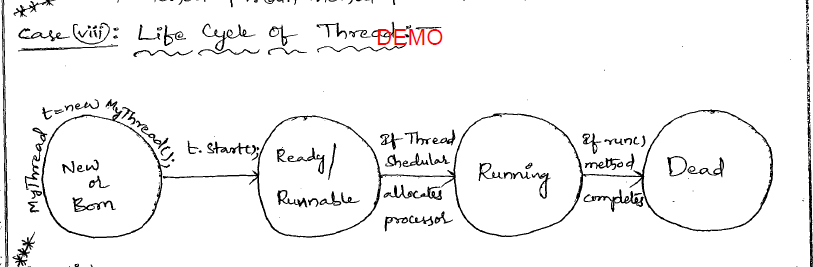 ***
Case (viii): Life Cycle of Thread:
DEMO
MyThread t=new MyThread();
New
or
Born
t.start();
Ready/
Runnable
If Thread
Shedular
allocates
processor
Running
If run()
method
completes
Dead
***